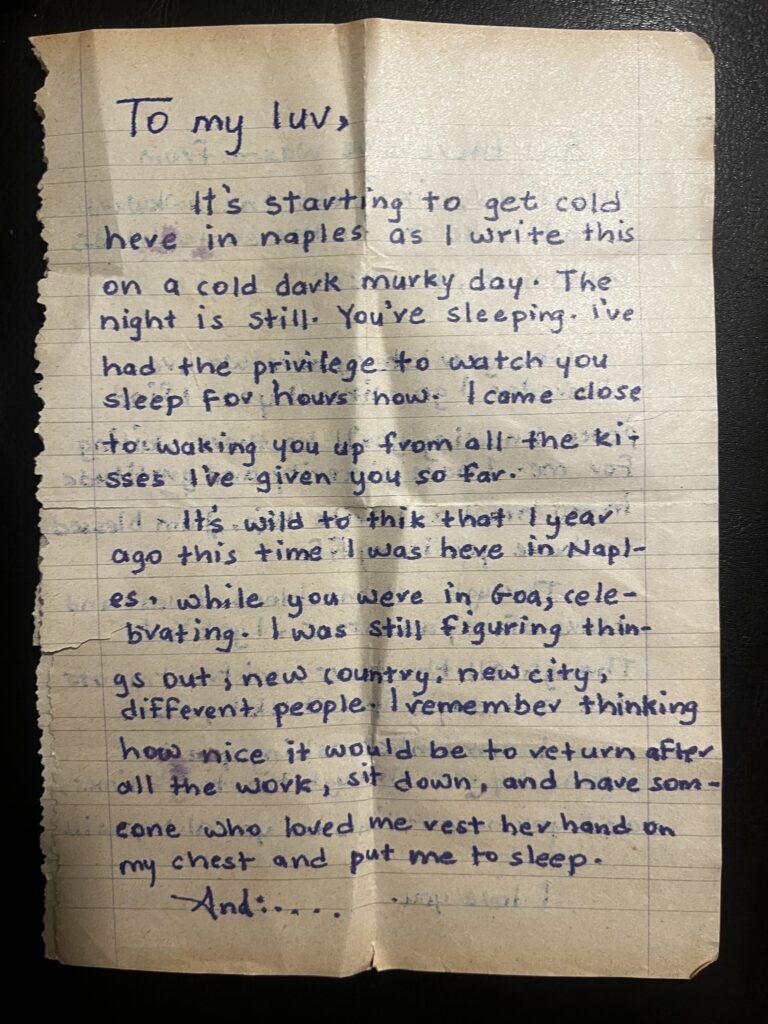 To my luv,
It's starting to get cold
here in naples as I write this
on a cold dark murky day. The
night is still. You're sleeping. i've
had the privilege to watch you
sleep for hours now. I came close
to waking you up from all the ki-
sses I've given you so far.
It's wild to thik that 1 year
ago this time I was here in Napl-
es, while you were in Goa, cele-
brating. I was still figuring thin-
gs out, new country, new city,
different people. I remember thinking
how nice it would be to return after
all the work, sit down, and have som-
eone who loved me rest her hand on
my chest and put me to sleep.
And:....